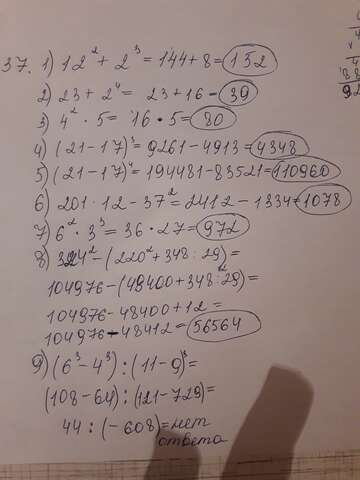 37. 1) 12² + 2³ = 144 + 8 = 152
2) 23 + 2⁴ = 23 + 16 = 39
3) 4² · 5 = 16 · 5 = 80
4) (21 - 17)³ = 9261 - 4913 = 4348
5) (21 - 17)⁴ = 194481 - 83521 = 110960
6) 201 · 12 - 37² = 2412 - 1334 = 1078
7) 6² · 3³ = 36 · 27 = 972
8) 324² - (220² + 348 : 29) =
104976 - (49400 + 348 : 29) =
104976 - 48400 + 12 =
104976 - 48412 = 56564
9) (6³ - 4³) : (11 - 9)³ =
(108 - 64) : (121 - 729) =
44 : (- 608) = нет
ответа